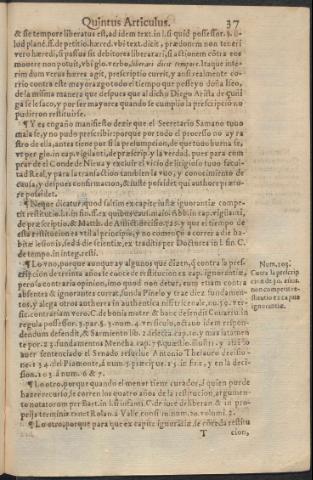 Quintus Articulus. 37
& sic tempore liberatus est, ad idem text. in l. si quid possessor. §.
lud planè. ff. de petitio. hæred. vbi text. dicit, prædonem non teneri
vero hæredi, si passus sit debitores liberari, si actionem cōtra eos
mouere non potuit, vbi glo. verbo, liberari dicit tempore. Itaque inte-
rim dum verus hæres agit, prescriptio currit, y ansi realmente co-
rrio contra este mayorazgo todo el tiempo que posseyo doña
de la misma manera que despues que al dicho Diego Arista de qui
ga se le saco, y por ser mayor ca quando se cumplio la prescriptiō no
pudieron restituirse.
¶ Y es engaño manifiesto dezir que el Secretario Samano tuuo
mala fe, y no pudo prescribir: porque por todo el processo no ay ra
stro de ella, antes tiene por si la presumpcion, de que tuuo buena fe,
vt per glo. in cap. vigilanti, de præscrip. y la verdad, pues para com
prar de el Conde de Nieua y excluir el vicio de litigioso tuuo facul-
tad Real, y para la transaction tambien la vuo, y conocimiento de
causa, y despues confirmacion, & iuste possidet qui authore præto-
re possidet.
¶ Neque dicatur, quod saltim ex capite iustæ ignorantiæ compe-
tit restitutio. l. in fin. ff. ex quibus caus. maio. Abb. in cap. vigilanti,
de præscriptio. & Matth. de Afflict. decisio. y que el tiempo de
esta restitutiones vtil a principio, y no començo a correr a die ha-
bitæ lesionis, sed à die scientiæ, ex traditis per Doctores in l. fin. C.
de tempo. in integ. resti.
¶ Lo vno, porque aunque ay algunos que dizen, q̃ contra la pres
cripcion de treinta años le conce de restitucion ex cap. ignorantiæ,
pero la contraria opinion, imo quod non detur, cum etiam contra
absentes & ignorantes currat, funda Pinelo y trae diez fundamen-
tos, y alega otros authores in authentica nisi tricenale, nu.
sic. contrariam vero. C. de bonis mater & hanc defendit Couarru. in
regula possessor. 3. par. §. 3. num. 4. versiculo, octauo idem respon-
dendum defendit, & Sarmiento lib. 2. selecta. cap. 10. y mas latamen
te por 23. fundamentos Mencha. cap. 75. question. illustr. y
auer sentenciado el Senado resuelue Antonio Thesauro decisio-
ne 134. del Piamonte, à num. 5. præcipue. 15. in fine, y en la deci-
sion. 103. à num. 6 & 7.
¶ Lo otro, porque quando el menor tiene curador, à quien puede
hazer recurso, le corren los quatro años de la restitucion, argumen-
to notatorum per Bart. in l. si infanti. C. de iure deliberan & in pro-
pijs terminis tenet Rolan. à Valle consilio num. 20. volumi. 2.
¶ Lo otro, porque para que ex capite ignorantiæ, se cōceda restitu
T cion,
Num. 103.
Cōtra la prescrip
ciō de 30. años.
non competit re-
stitutio ex capite
ignorantiæ.